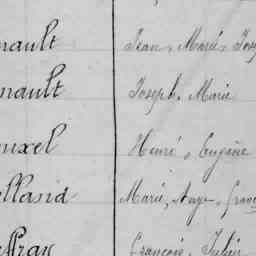 nault Jean, Marie, Jos
nault Joseph, Marie
uxel Henri, Eugène
ellasid Marie, Ange, Fran
ffray François, Julien